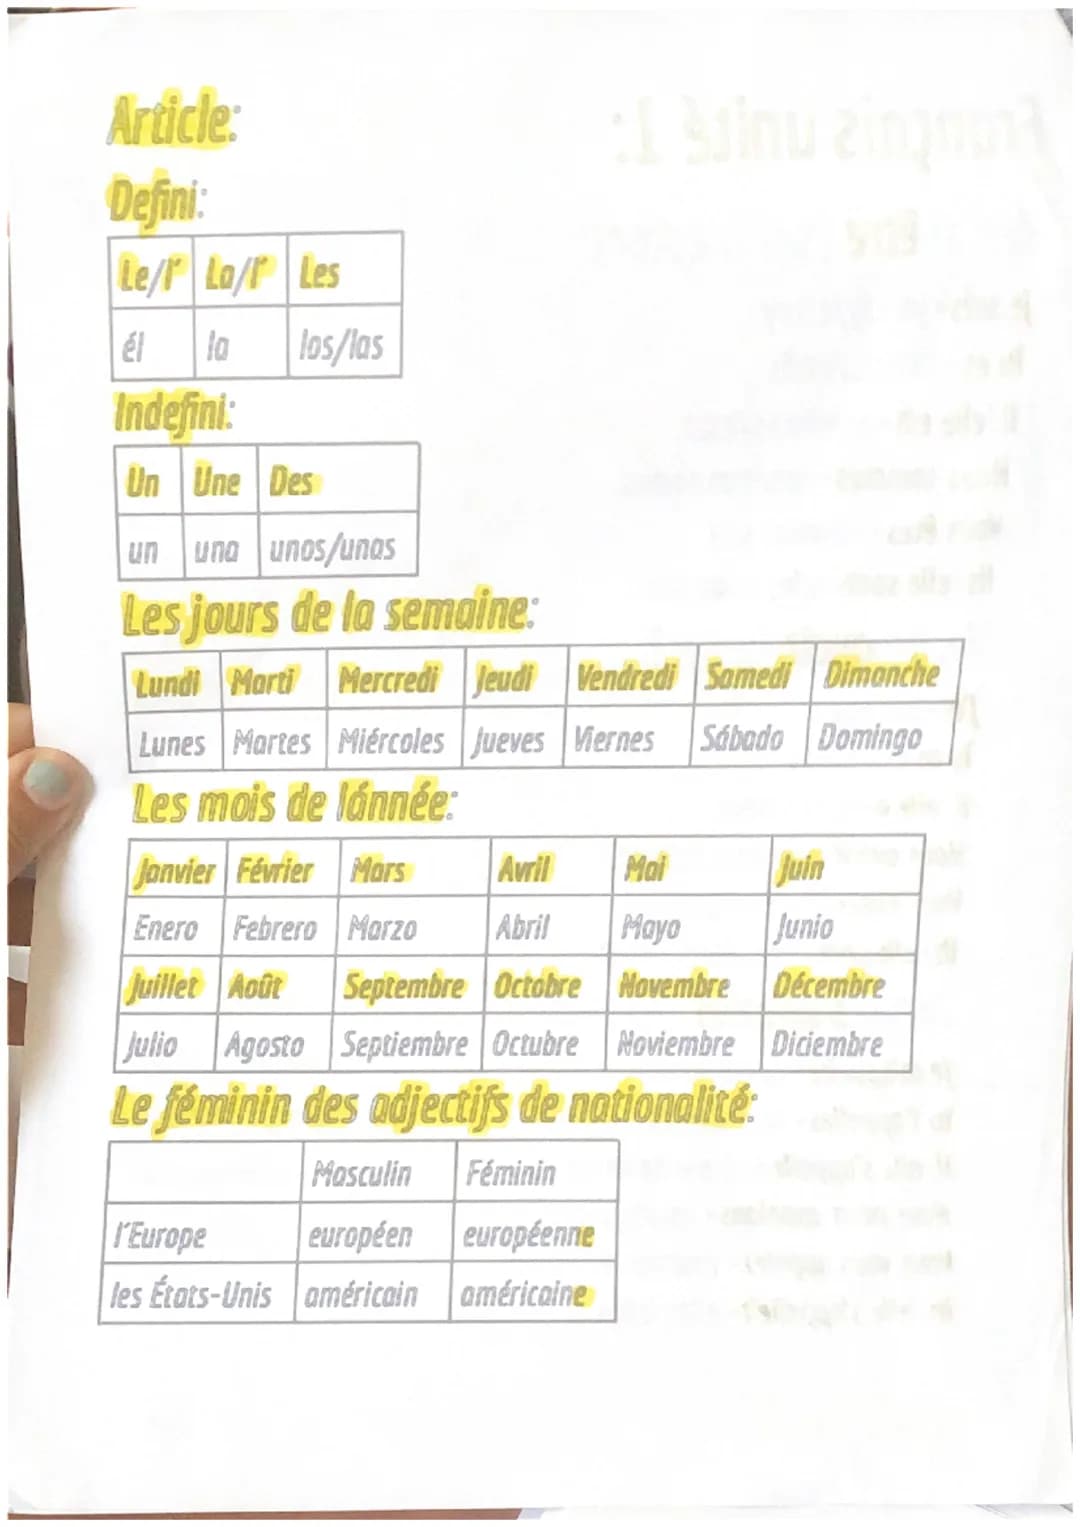 Article:
Defini:
Le/l' La/l' Les
él la los/las
Indefini:
Un Une Des
un una unos/unas
Les jours de la semaine:
Lundi Marti Mercredi Jeudi Vendredi Samedi Dimanche
Lunes Martes Miércoles Jueves Viernes Sábado Domingo
Les mois de lánnée:
Janvier Février Mars Avril Mai Juin
Enero Febrero Marzo Abril Mayo Junio
Juillet Août Septembre Octobre Novembre Décembre
Julio Agosto Septiembre Octubre Noviembre Diciembre
Le féminin des adjectifs de nationalité:
Masculin Féminin
l'Europe européen européenne
les États-Unis américain américaine
Français unité 1:
Être